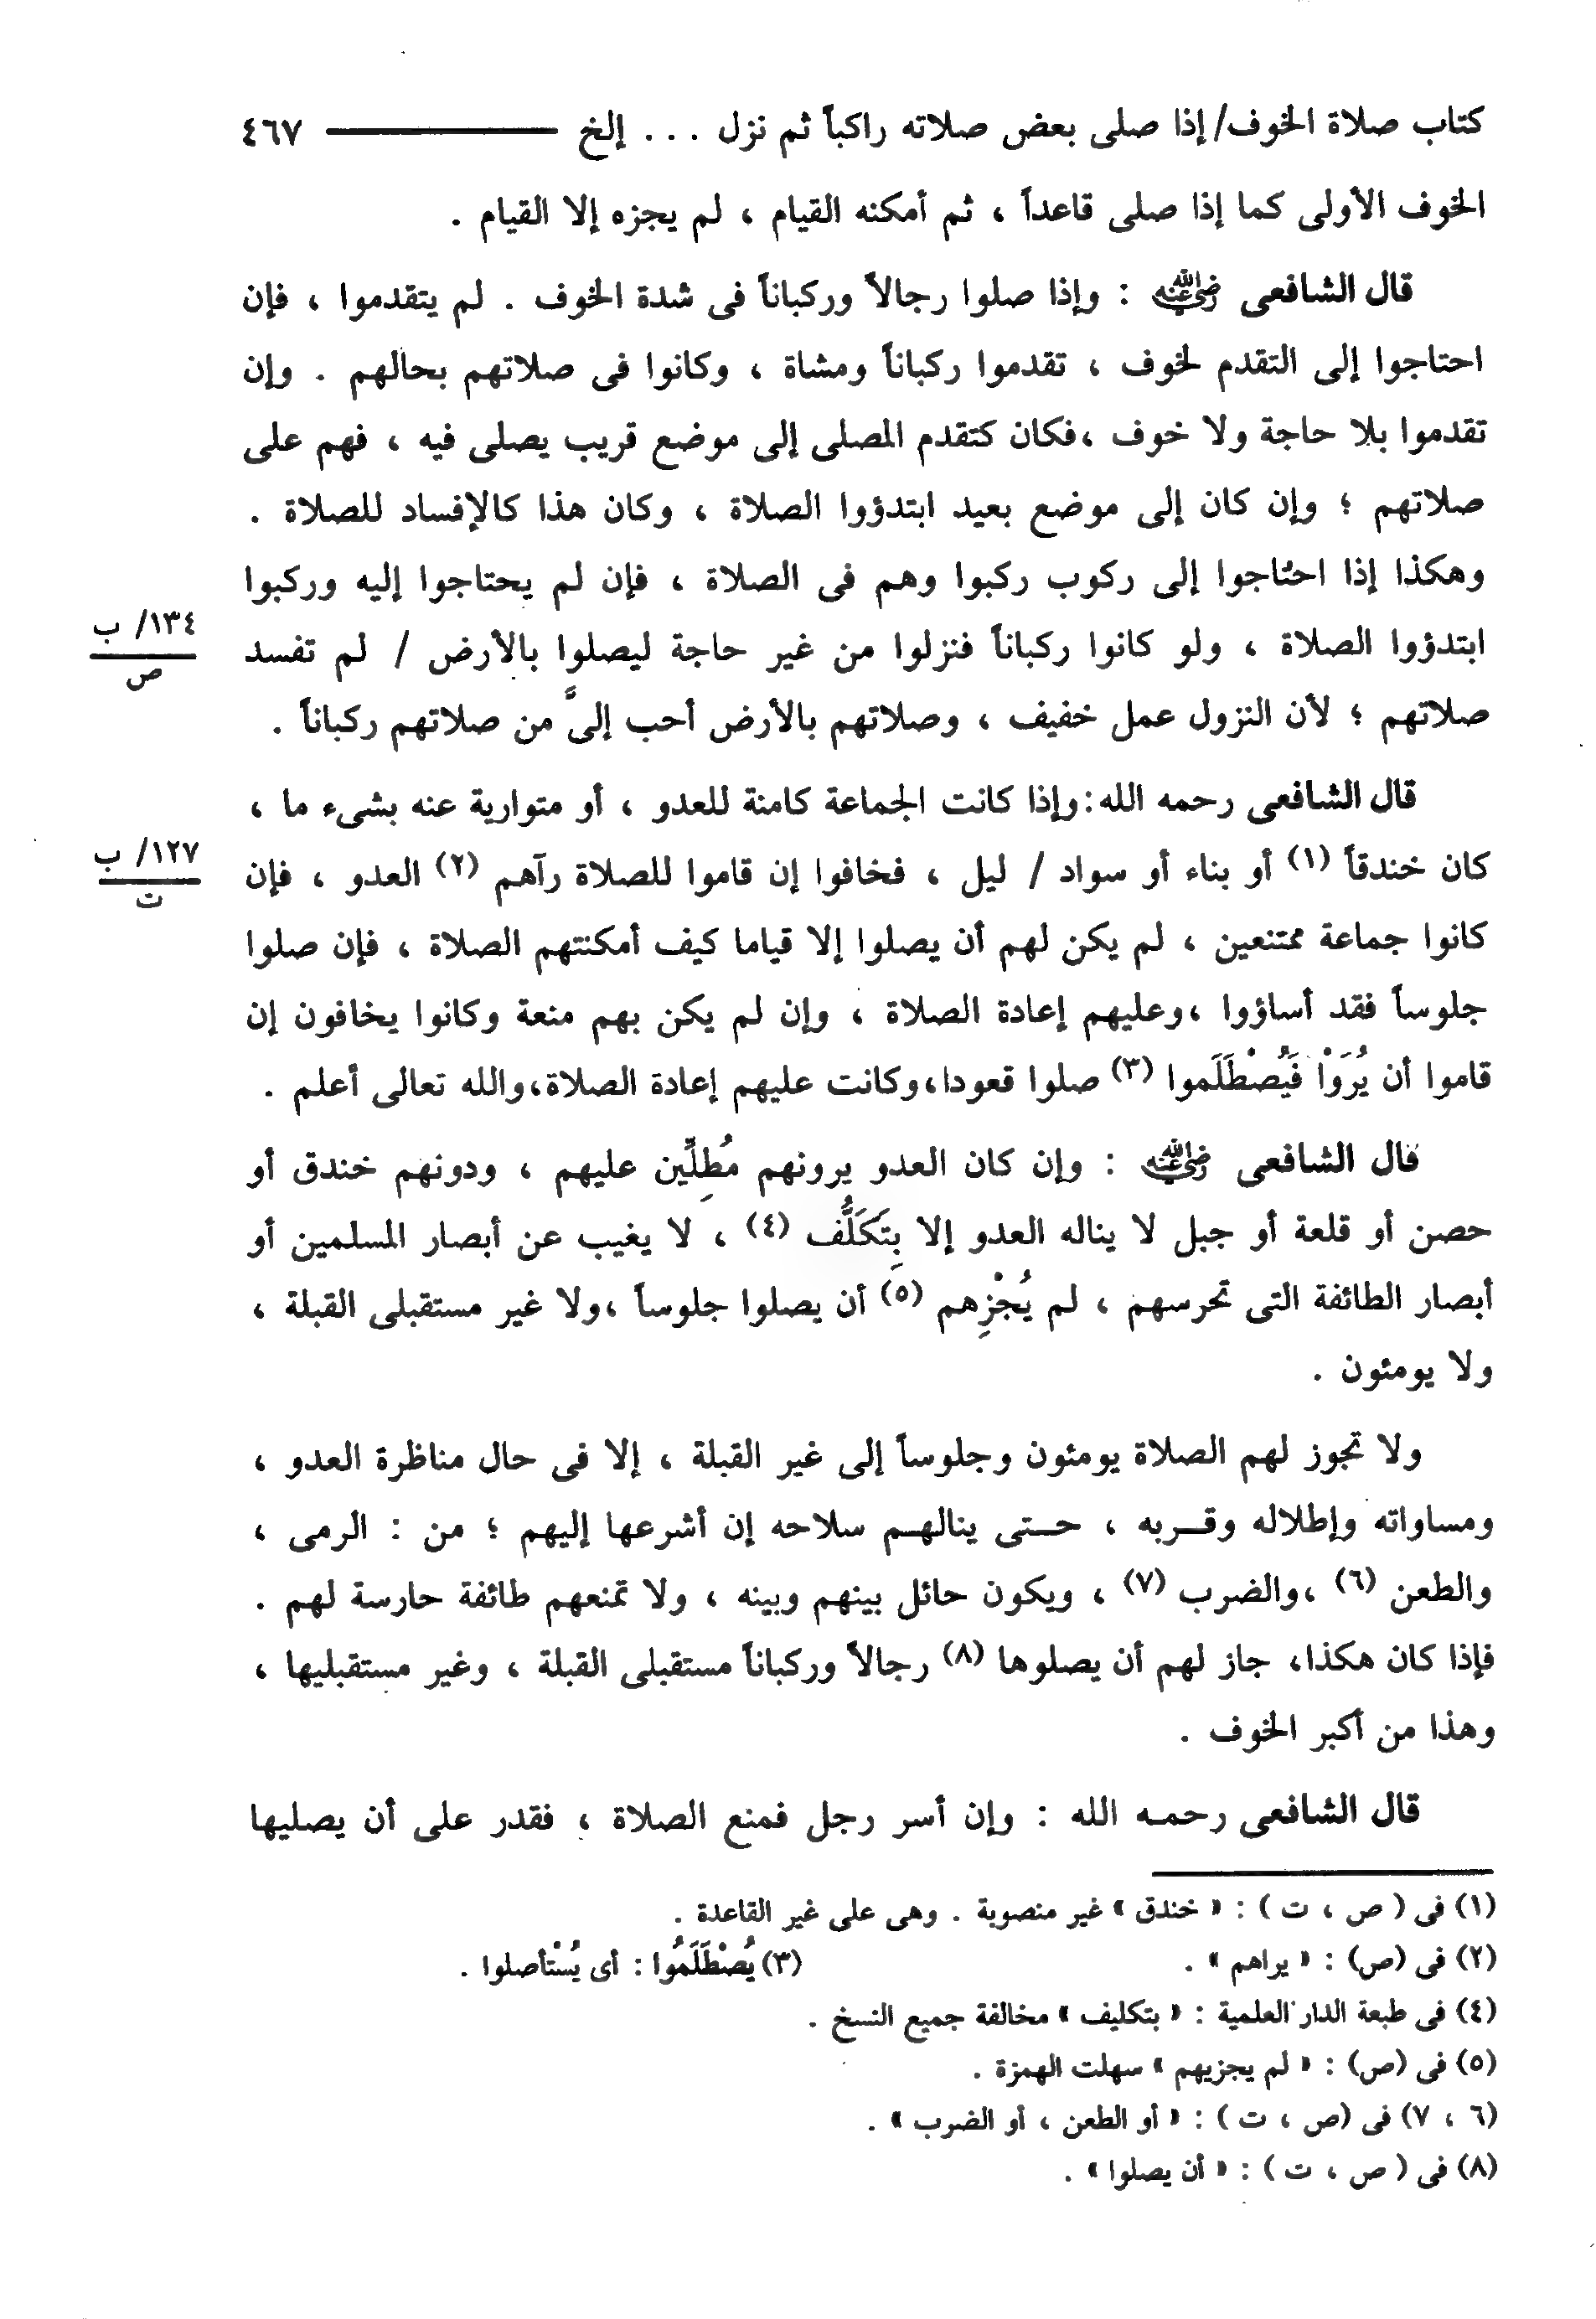 كتاب صلاة الخوف/ إذا صلى بعض صلاته راكباً ثم نزل . . . إلخ ٤٦٧
الخوف الأولى كما إذا صلى قاعداً ، ثم أمكنه القيام ، لم يجزه إلا القيام .
قال الشافعى رضي الله عنه : وإذا صلوا رجالاً وركباناً فى شدة الخوف . لم يتقدموا ، فإن
احتاجوا إلى التقدم لخوف ، تقدموا ركباناً ومشاة ، وكانوا فى صلاتهم بحالهم . وإن
تقدموا بلا حاجة ولا خوف ،فكان كتقدم المصلى إلى موضع قريب يصلى فيه ، فهم على
صلاتهم ؛ وإن كان إلى موضع بعيد ابتدؤوا الصلاة ، وكان هذا كالإفساد للصلاة .
وهكذا إذا احتاجوا إلى ركوب ركبوا وهم فى الصلاة ، فإن لم يحتاجوا إليه وركبوا
ابتدؤوا الصلاة ، ولو كانوا ركباناً فنزلوا من غير حاجة ليصلوا بالأرض / لم تفسد
١٣٤/ ب
ص
صلاتهم ؛ لأن النزول عمل خفيف ، وصلاتهم بالأرض أحب إلىَّ من صلاتهم ركباناً .
قال الشافعى رحمه الله:وإذا كانت الجماعة كامنة للعدو ، أو متوارية عنه بشىء ما ،
كان خندقاً (١) أو بناء أو سواد / ليل ، فخافوا إن قاموا للصلاة رآهم (٢) العدو ، فإن
١٢٧/ ب
ت
كانوا جماعة ممتنعين ، لم يكن لهم أن يصلوا إلا قياما كيف أمكنتهم الصلاة ، فإن صلوا
جلوساً فقد أساؤوا ،وعليهم إعادة الصلاة ، وإن لم يكن بهم منعة وكانوا يخافون إن
قاموا أن يُرَوْا فَيُصْطَلَموا (٣) صلوا قعودا،وكانت عليهم إعادة الصلاة،والله تعالى أعلم .
قال الشافعى رضي الله عنه : وإن كان العدو يرونهم مُطِلِّين عليهم ، ودونهم خندق أو
حصن أو قلعة أو جبل لا يناله العدو إلا بِتَكَلُّف (٤) ، لا يغيب عن أبصار المسلمين أو
أبصار الطائفة التى تحرسهم ، لم يُجْزِهم (٥) أن يصلوا جلوساً ،ولا غير مستقبلى القبلة ،
ولا يومئون .
ولا تجوز لهم الصلاة يومئون وجلوساً إلى غير القبلة ، إلا فى حال مناظرة العدو ،
ومساواته وإطلاله وقــربه ، حــتى ينالهــم سلاحه إن أشرعها إليهم ؛ من : الرمى ،
والطعن (٦) ،والضرب (٧) ، ويكون حائل بينهم وبينه ، ولا تمنعهم طائفة حارسة لهم .
فإذا كان هكذا، جاز لهم أن يصلوها (٨) رجالاً وركباناً مستقبلى القبلة ، وغير مستقبليها ،
وهذا من أكبر الخوف .
قال الشافعى رحمـه الله : وإن أسر رجل فمنع الصلاة ، فقدر على أن يصليها
(١) فى ( ص ، ت ) : « خندق » غير منصوبة . وهى على غير القاعدة .
(٢) فى (ص) : « يراهم » . (٣) يُصْطَلَمُوا : أى يُسْتأصلوا .
(٤) فى طبعة الدار العلمية : « بتكليف » مخالفة جميع النسخ .
(٥) فى (ص) : « لم يجزيهم » سهلت الهمزة .
(٦ ، ٧) فى (ص ، ت ) : « أو الطعن ، أو الضرب » .
(٨) فى ( ص ، ت ) : « أن يصلوا » .